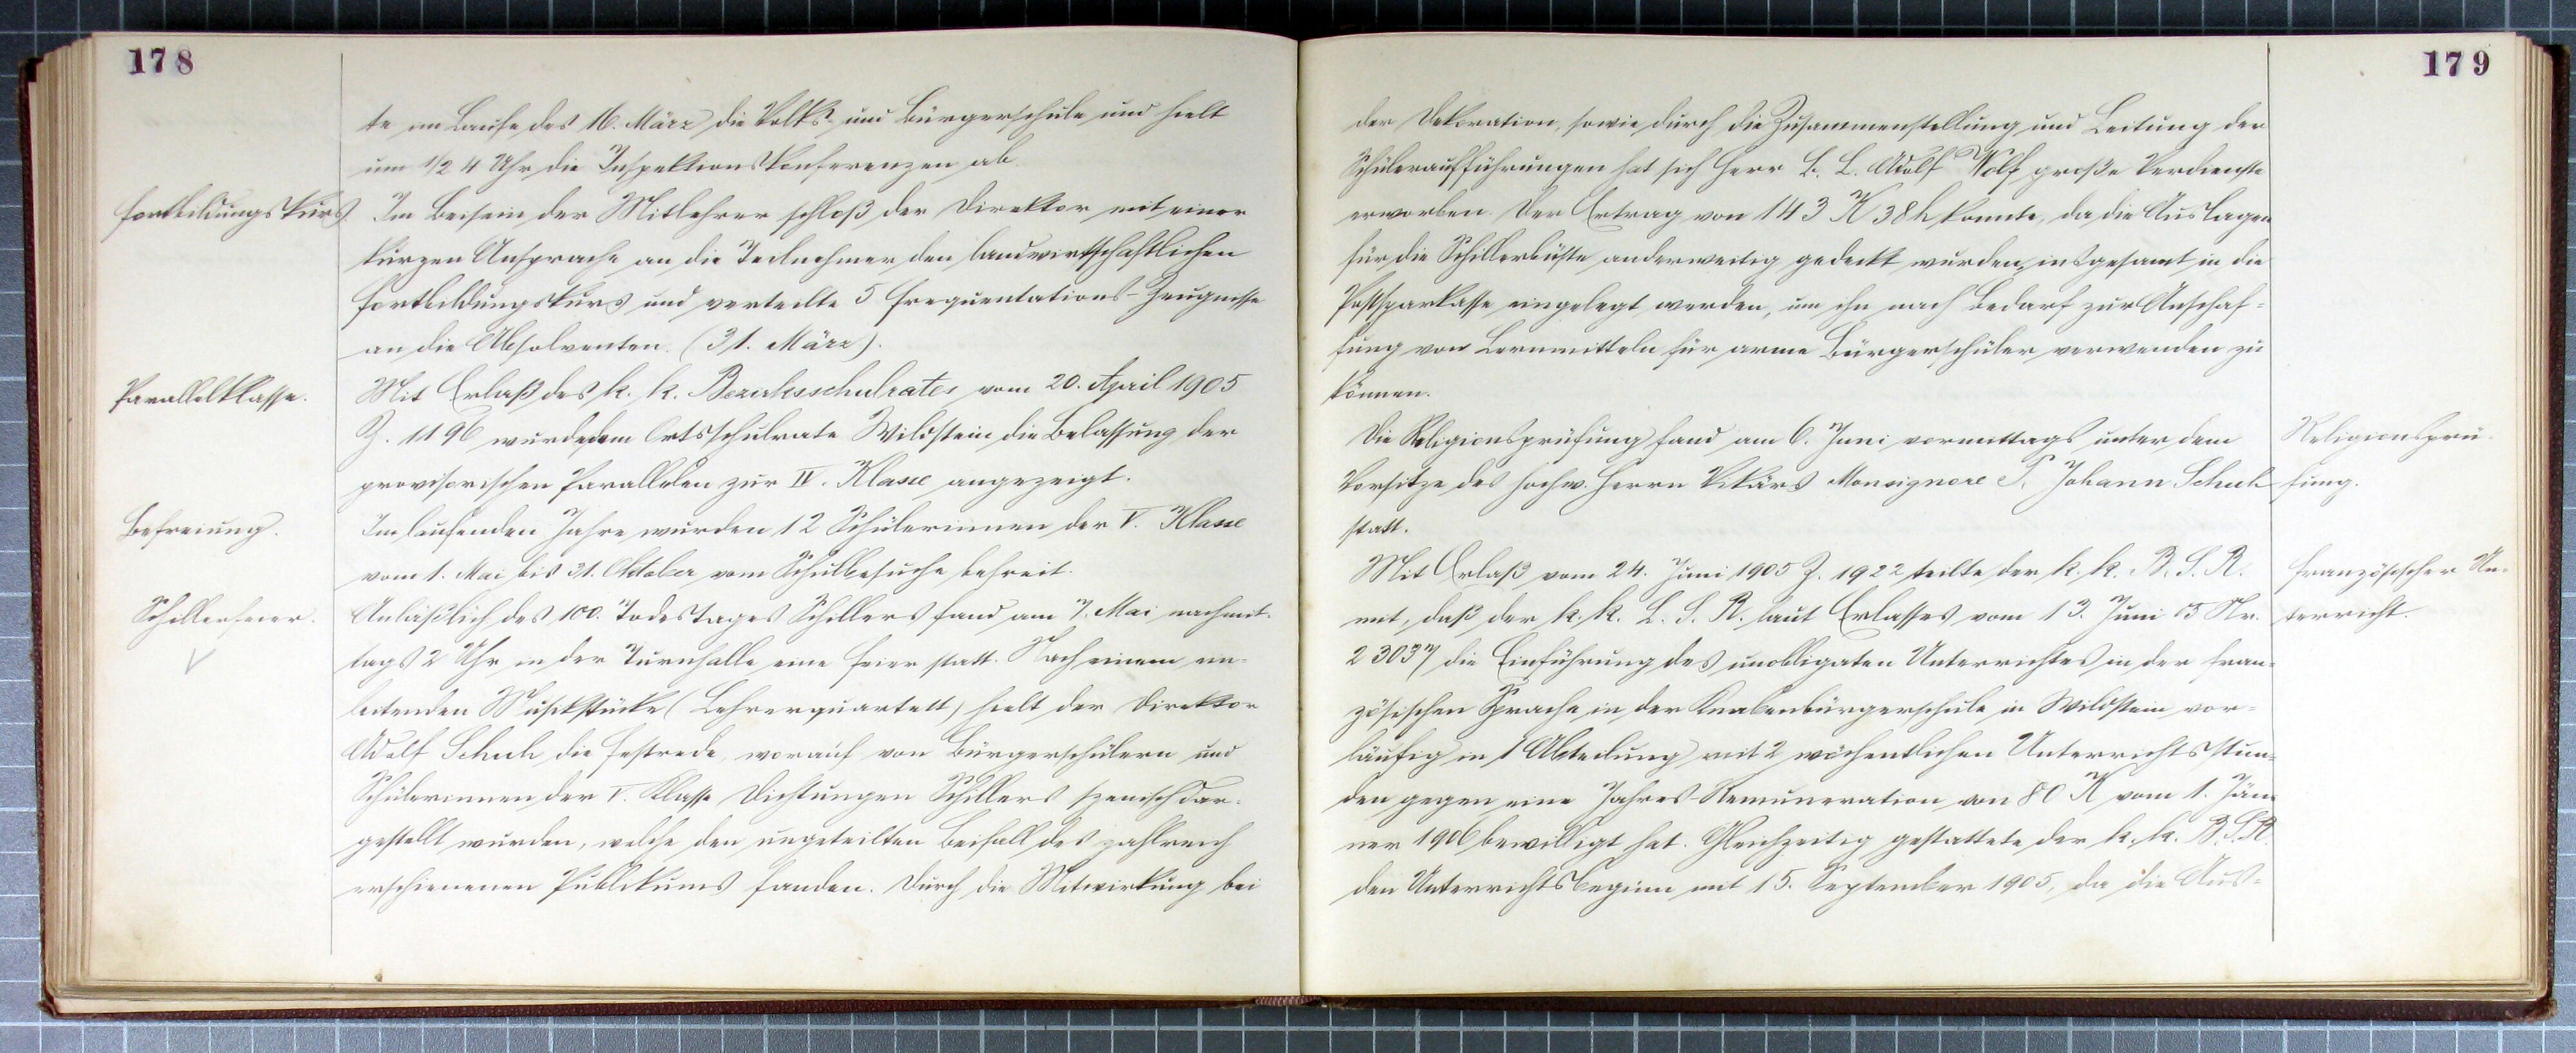 178
te im Laufe des 16. März die Volks- und Bürgerschule und hielt
um 1/2 4 Uhr die Inspektionskonferenzen ab.
Fortbildungskurs
Im Beisein der Mitlehrer schloß der Direktor mit einer
kurzen Ansprache an die Teilnehmer den landwirtschaftlichen
Fortbildungskurs und verteilte 5 Frequentations-Zeugnisse
an die Absolventen. (31. März).
Parallelklasse.
Mit Erlaß des k. k. Bezirksschulrates vom 20. April 1905
Z. 1196 wurde dem Ortsschulrate Wildstein die Belassung der
provisorischen Parallelen zur IV. Klasse angezeigt.
Befreiung.
Im laufenden Jahre wurden 12 Schülerinnen der V. Klasse
vom 1. Mai bis 31. Oktober vom Schulbesuche befreit.
Schillerfeier.
Anläßlich des 100. Todestages Schillers fand am 7. Mai nachmit-
tags 2 Uhr in der Turnhalle eine Feier statt. Nach einem ein-
leitenden Musikstücke (Lehrerquartett) hielt der Direktor
Adolf Schuh die Festrede, worauf von Bürgerschülern und
Schülerinnen der V. Klasse Dichtungen Schillers szenisch dar-
gestellt wurden, welche den ungeteilten Beifall des zahlreich
erschienenen Publikums fanden. Durch die Mitwirkung bei
179
der Dekoration, sowie durch die Zusammenstellung und Leitung der
Schüleraufführungen hat sich Herr B. L. Adolf Wolf große Verdienste
erworben. Der Ertrag von 143 K 38 h konnte, da die Auslagen
für die Schillerbüste anderweitig gedeckt wurden, insgesamt in die
Postsparkasse eingelegt werden, um ihn nach Bedarf zur Anschaf-
fung von Lernmitteln für arme Bürgerschüler verwenden zu
können.
Die Religionsprüfung fand am 6. Juni vormittags unter dem
Religionsprü-
Vorsitze des hochw. Herrn Vikärs Monsignore P. Johann Schuh
fung.
statt.
Mit Erlaß vom 24. Juni 1905 Z. 1922 teilte der k. k. B. S. R.
Französischer Un-
mit, daß der k. k. L. S. R. laut Erlasses vom 13. Juni 05 Nr.
terricht.
23037 die Einführung des unobligaten Unterrichtes in der fran-
zösischen Sprache in der Knabenbürgerschule in Wildstein vor-
läufig in 1 Abteilung mit 2 wöchentlichen Unterrichtsstun-
den gegen eine Jahres-Remuneration von 80 K vom 1. Jän-
ner 1906 bewilligt hat. Gleichzeitig gestattete der k. k. B. S. R.
den Unterrichtsbeginn mit 15. September 1905, da die Aus-